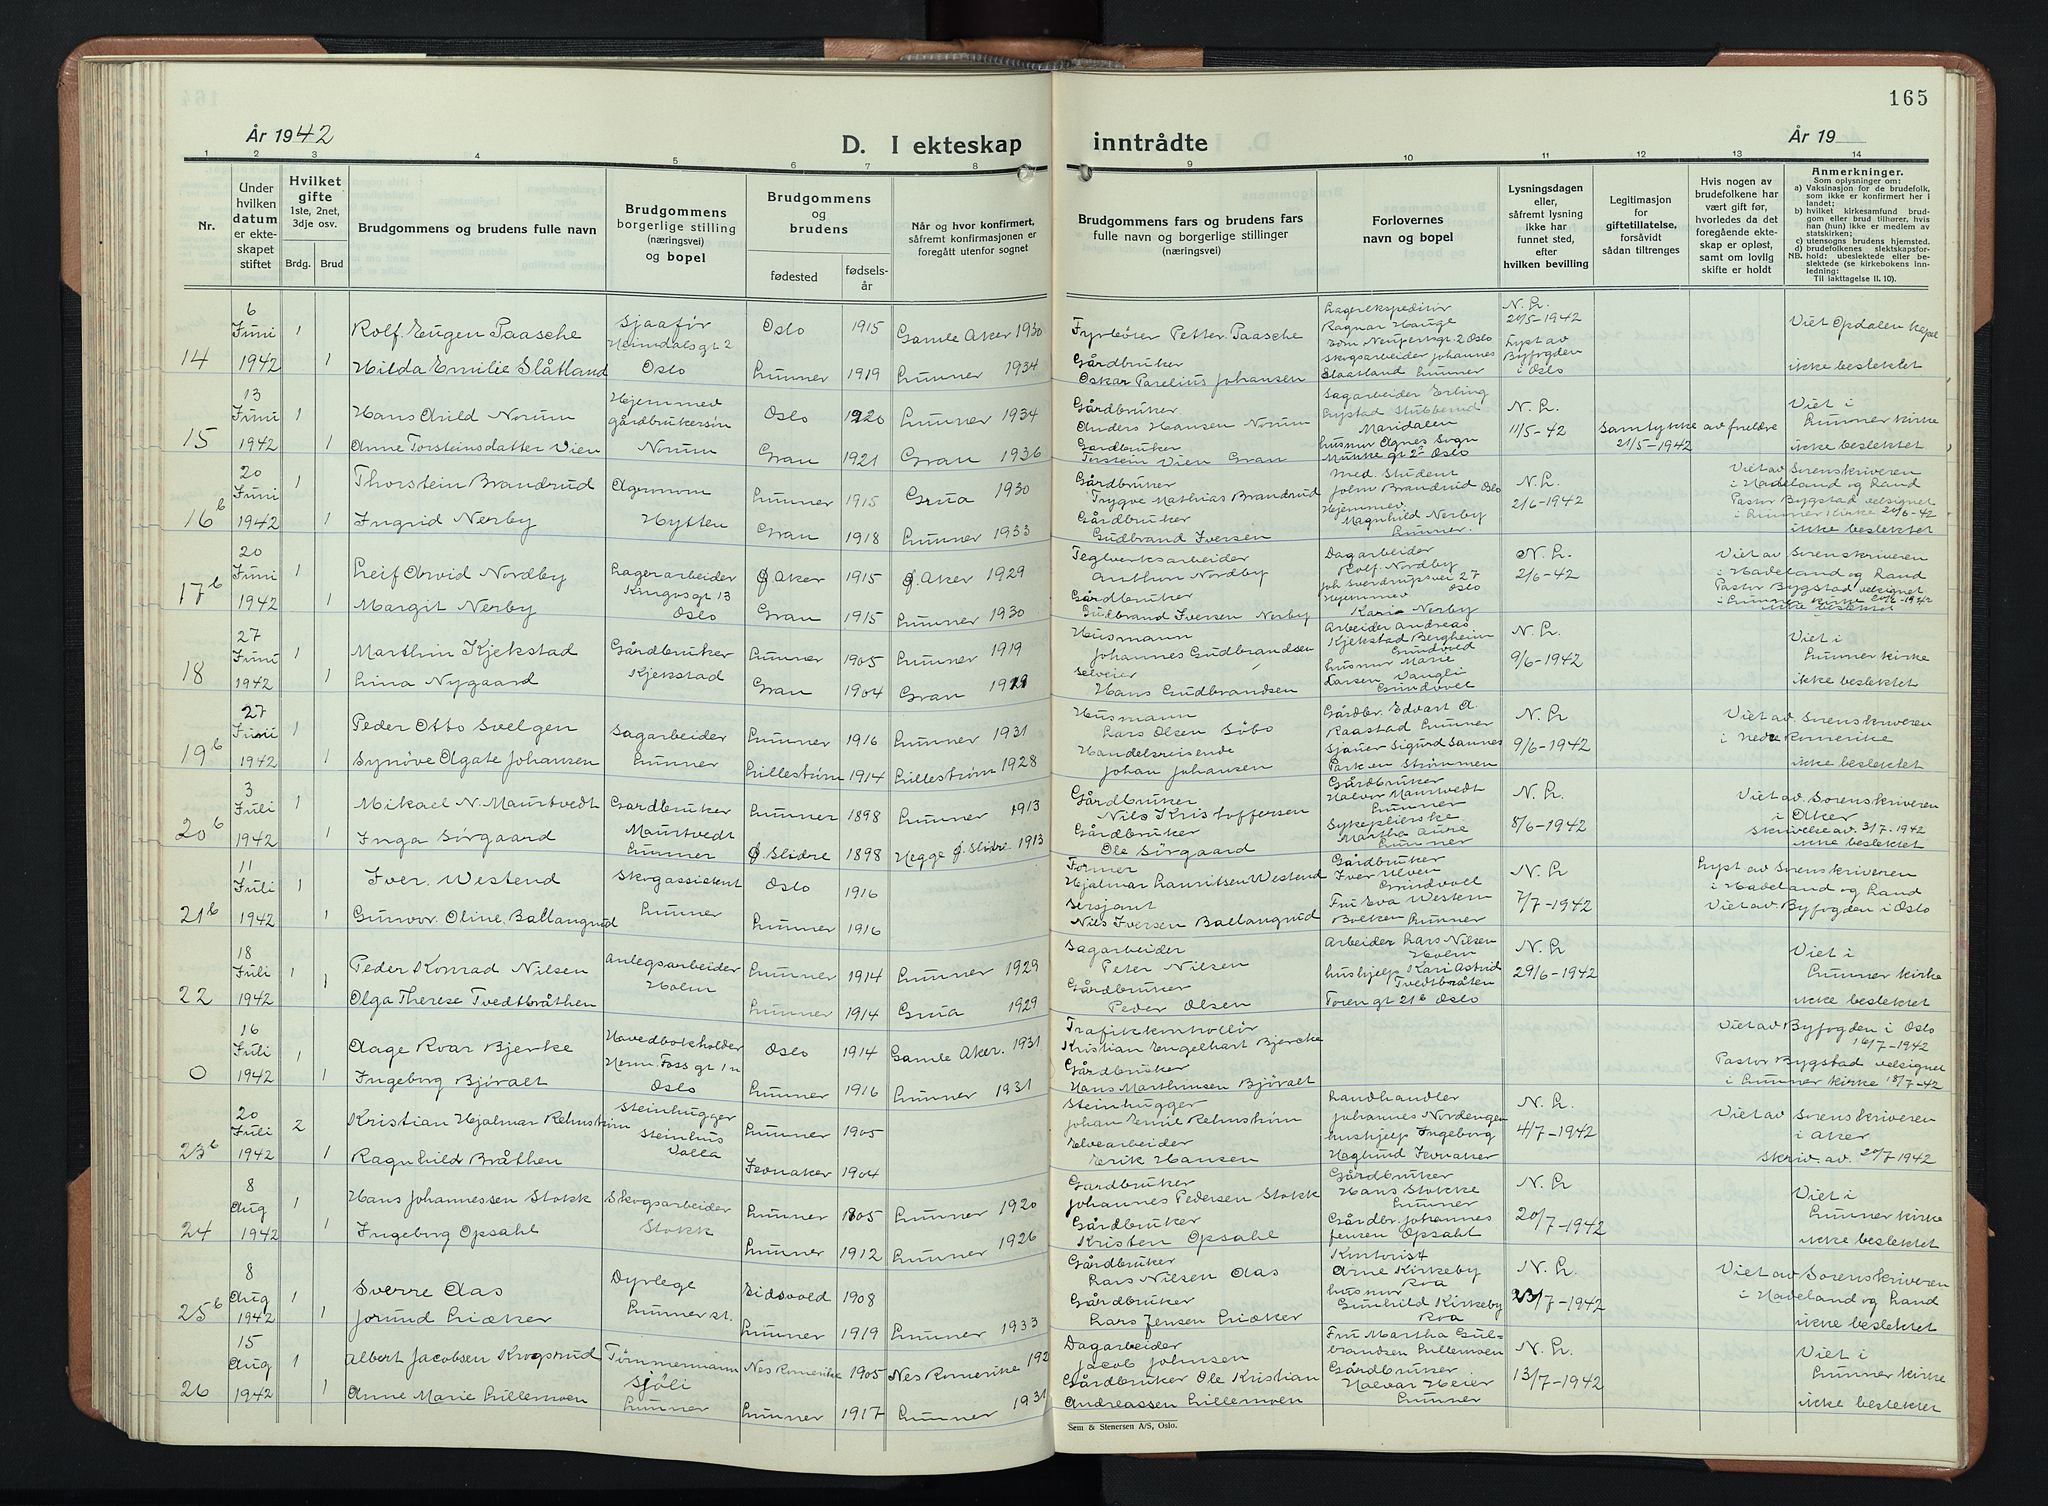 165
År 1942
D. I ekteskap inntrådte
År 19
1 2 3 4 5 6 7 8 9 10 11 12 13 14
Nr.
Under hvilken datum er ekteskapet stiftet
Hvilket gifte 1ste, 2net, 3dje osv.
Brdg. Brud
Brudgommens og brudens fulle navn
Brudgommens borgerlige stilling (næringsvei) og bopel
Brudgommens og brudens
fødested
fødselsår
Når og hvor konfirmert, såfremt konfirmasjonen er foregått utenfor sognet
Brudgommens fars og brudens fars fulle navn og borgerlige stillinger (næringsvei)
Forlovernes navn og bopel
Lysningsdagen eller, såfremt lysning ikke har funnet sted, efter hvilken bevilling
Legitimasjon for giftetillatelse, forsåvidt sådan tiltrenges
Hvis nogen av brudefolkene har vært gift før, hvorledes da det foregående ekteskap er opløst, samt om lovlig skifte er holdt
Anmerkninger.
Som oplysninger om:
a) Vaksinasjon for de brudefolk, som ikke er konfirmert her i landet;
b) hvilket kirkesamfund brudgom eller brud tilhører, hvis han (hun) ikke er medlem av statskirken;
c) utensogns brudens hjemsted.
d) brudefolkenes slektskapsforhold: ubeslektede eller beslektede (se kirkebokens innledning:
NB. Til iakttagelse II. 10).
14 6 Juni 1942 1 Rolf Eugen Paasche Sjaafør Heimdalsgt 2 Oslo Oslo 1915 Gamle Aker 1930 Fyrbøter Petter Paasche Lagerekspeditør Ragnar Hauge Edm Neupertsgt 2 Oslo N. L. 21/5-1942 Lyst av Byfogden i Oslo Viet Opdalen Kapel
1 Hilda Emilie Slåtland Lunner 1919 Lunner 1934 Gårdbruker Oskar Parelius Johansen Skogsarbeider Johannes Slaatland Lunner ikke beslektet
15 13 Juni 1942 1 Hans Arild Norum Hjemmev gårdbrukersøn Norum Oslo 1920 Lunner 1934 Gårdbruker Anders Hansen Norum Sagarbeider Erling Lystad Stubberud Maridalen N. L. 11/5-42 Samtykke av foreldre 21/5-1942 Viet i Lunner kirke
1 Anne Torsteinsdatter Vien Gran 1921 Gran 1936 Gardbruker Torstein Vien Gran husmor Agnes Sogn Munke gt 2 Oslo ikke beslektet
16 b 20 Juni 1942 1 Thorstein Brandrud Agronom Hytten Lunner 1915 Grua 1930 Gårdbruker Trygve Mathias Brandrud Med. Student John Brandrud Oslo N. L. 2/6-1942 Viet av Sorenskriveren i Hadeland og Land Pastor Bygstad velsignet i Lunner kirke 20/6-42
1 Ingrid Nerby Gran 1918 Lunner 1933 Gårdbruker Gudbrand Iversen Hjemmev Magnhild Nerby Lunner. ikke beslektet
17 b 20 Juni 1942 1 Leif Arvid Nordby Lagerarbeider Kingosgt 13 Oslo Ø Aker 1915 Ø. Aker 1929 Teglverksarbeider Anthon Nordby Dagarbeider Rolf Nordby Joh Sverdrupsvei 27 Oslo N. L. 2/6-42 Viet av Sorenskriveren i Hadeland og Land Pastor Bygstad velsignet i Lunner kirke 20/6-1942
1 Margit Nerby Gran 1915 Lunner 1930 Gårdbruker Gudbrand Iversen Nerby Hjemmev Kari Nerby ikke beslektet
18 27 Juni 1942 1 Marthin Kjekstad Gårdbruker Kjekstad Lunner 1905 Lunner 1919 Husmann Johannes Gudbrandsen Arbeider Andreas Kjekstad Bergheim Grindvold N. L. 9/6-1942 Viet i Lunner kirke
1 Lina Nygaard Gran 1904 Gran 1919 Selveier Hans Gudbrandsen husmor Marie Larsen Vangli Grindvol ikke beslektet
19 b 27 Juni 1942 1 Peder Otto Svelgen Sagarbeider Lunner Lunner 1916 Lunner 1931 Husmann Lars Olsen Søbo Gårdbr. Edvart A. Raastad Lunner N. L. 9/6-1942 Viet av Sorenskriveren i Nedre Romerike
1 Synøve Agate Johansen Lillestrøm 1914 Lillestrøm 1928 Handelsreisende Johan Johansen Sjauer Sigurd Sannes Parken Strømmen ikke beslektet
20 b 3 Juli 1942 1 Mikael N. Maurtvedt Gardbruker Maurtvedt Lunner Lunner 1898 Lunner 1913 Gårdbruker Nils Kristoffersen Gårdbruker Halvor Maurtvedt Lunner N. L. 8/6-1942 Viet av Sorenskriveren i Aker Skrivelse av 3/7-1942
1 Inga Sørgaard Ø. Slidre 1898 Hegge Ø. Slidre 1913 Gårdbruker Ole Sørgaard Sykepleierske Martha Aure Lunner ikke beslektet
21 b 11 Juli 1942 1 Iver Westend Skogassistent Lunner Oslo 1916 Former Hjalmar Lauritsen Westend Gårdbruker Iver Ulven Grindvol N. L. 7/7-1942 Lyst av Sorenskriveren i Hadeland og Land Viet av Byfogden i Oslo
1 Gunvor Oline Ballangrud Lunner 1916 Sersjant Nils Iversen Ballangrud Fru Eva Western Bolken Lunner
22 18 Juli 1942 1 Peder Konrad Nilsen Anlegsarbeider Holm Lunner 1914 Lunner 1929 Sagarbeider Peter Nilsen Arbeider Lars Nilsen Holm N. L. 29/6-1942 Viet i Lunner kirke
1 Olga Therese Tvedtbråthen Lunner 1914 Grua 1929 Gårdbruker Peder Olsen hushjelp Kari Astrid Tvedtbråten Toren gt 21 b Oslo ikke beslektet
0 16 Juli 1942 1 Aage Roar Bjerke Hovedbokholder Herm. Foss gt 1 Oslo Oslo 1914 Gamle Aker. 1931 Trafikkontrollør Kristian Engelhart Bjercke Viet av Byfogden i Oslo 16/7-1942
1 Ingeborg Bjøralt Lunner 1916 Lunner 1931 Gårdbruker Hans Marthinsen Bjøralt Pastor Bygstad velsignet i Lunner kirke 18/7-42
23 b 20 Juli 1942 2 Kristian Hjalmar Rehnstrøm Steinhugger Steinhus Volla Lunner 1905 Steinhugger Johan Emil Rehnstrøm Landhandler Johannes Nordengen N. L. 4/7-1942 Viet av Sorenskriveren i Aker
1 Ragnhild Bråthen Jevnaker 1904 Elvearbeider Erik Hansen hushjelp Ingeborg Haglund Jevnaker Skriv. av. 20/7 1942
24 8 Aug 1942 1 Hans Johannessen Stokk Skogsarbeider Stokk Lunner 1905 Lunner 1920 Gardbruker Johannes Pedersen Stokk Gårdbruker Hans Stokke Lunner N. L. 20/7-1942 Viet i Lunner kirke
1 Ingeborg Opsahl Lunner 1912 Lunner 1926 Gårdbruker Kristen Opsahl Gårdbr. Johannes Jensen Opsahl ikke beslektet
25 b 8 Aug 1942 1 Sverre Aas Dyrlege Lunner st. Eidsvold 1908 Gårdbruker Lars Nilsen Aas Kontorist Arne Kirkeby Roa N. L. 23/7-1942 Viet av Sorenskriveren i Hadeland og Land
1 Jorund Liæker Lunner 1919 Lunner 1933 Gårdbruker Lars Jensen Liæker husmor Gunhild Kirkeby Roa ikke beslektet
26 15 Aug 1942 1 Albert Jacobsen Krogsrud Tømmermann Sjøli Lunner Nes Romerike 1905 Nes Romerike 192 Dagarbeider Jacob Johnsen Fru Martha Gulbrandsen Lillemoen N. L. 13/7-1942 Viet i Lunner kirke
1 Anne Marie Lillemoen Lunner 1917 Lunner 1931 Gårdbruker Ole Kristian Andreassen Lillemoen Gårdbruker Halvar Heier Lunner ikke beslektet
Sem & Stenersen A/S, Oslo.